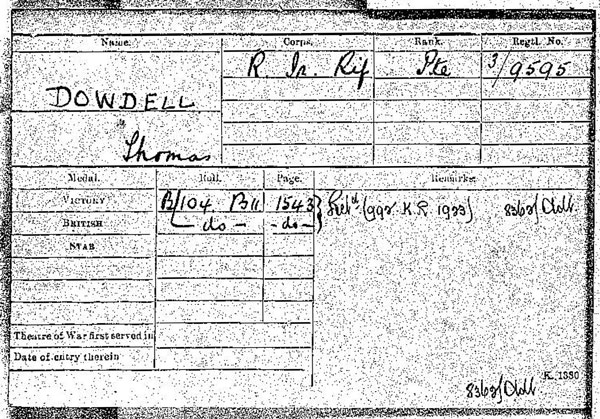 Name. Corps. Rank. Regtl. No.
DOWDELL R. Ir. Rif Pte 3/9595
Thomas
Medal. Roll. Page. Remarks.
VICTORY B/104 B11 1543 (992 K.R. 1923)
BRITISH - do - - do -
STAR
Theatre of War first served in
Date of entry therein
K. 1380